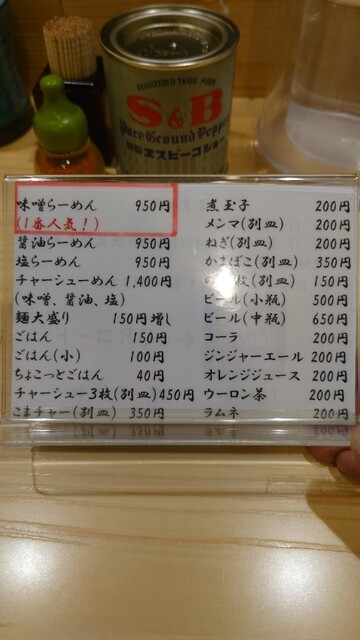 REGISTERED TRADE MARK
S&B
Pure Ground Pepper
特製ヱスビーコショー
味噌らーめん 950円
(1番人気！)
醤油らーめん 950円
塩らーめん 950円
チャーシューめん 1,400円
(味噌、醤油、塩)
麺大盛り 150円増し
ごはん 150円
ごはん(小) 100円
ちょこっとごはん 40円
チャーシュー3枚(別皿)450円
こまチャー(別皿) 350円
煮玉子 200円
メンマ(別皿) 200円
ねぎ(別皿) 200円
かまぼこ(別皿) 350円
(別皿) 150円
ビール(小瓶) 500円
ビール(中瓶) 650円
コーラ 200円
ジンジャーエール 200円
オレンジジュース 200円
ウーロン茶 200円
ラムネ 200円